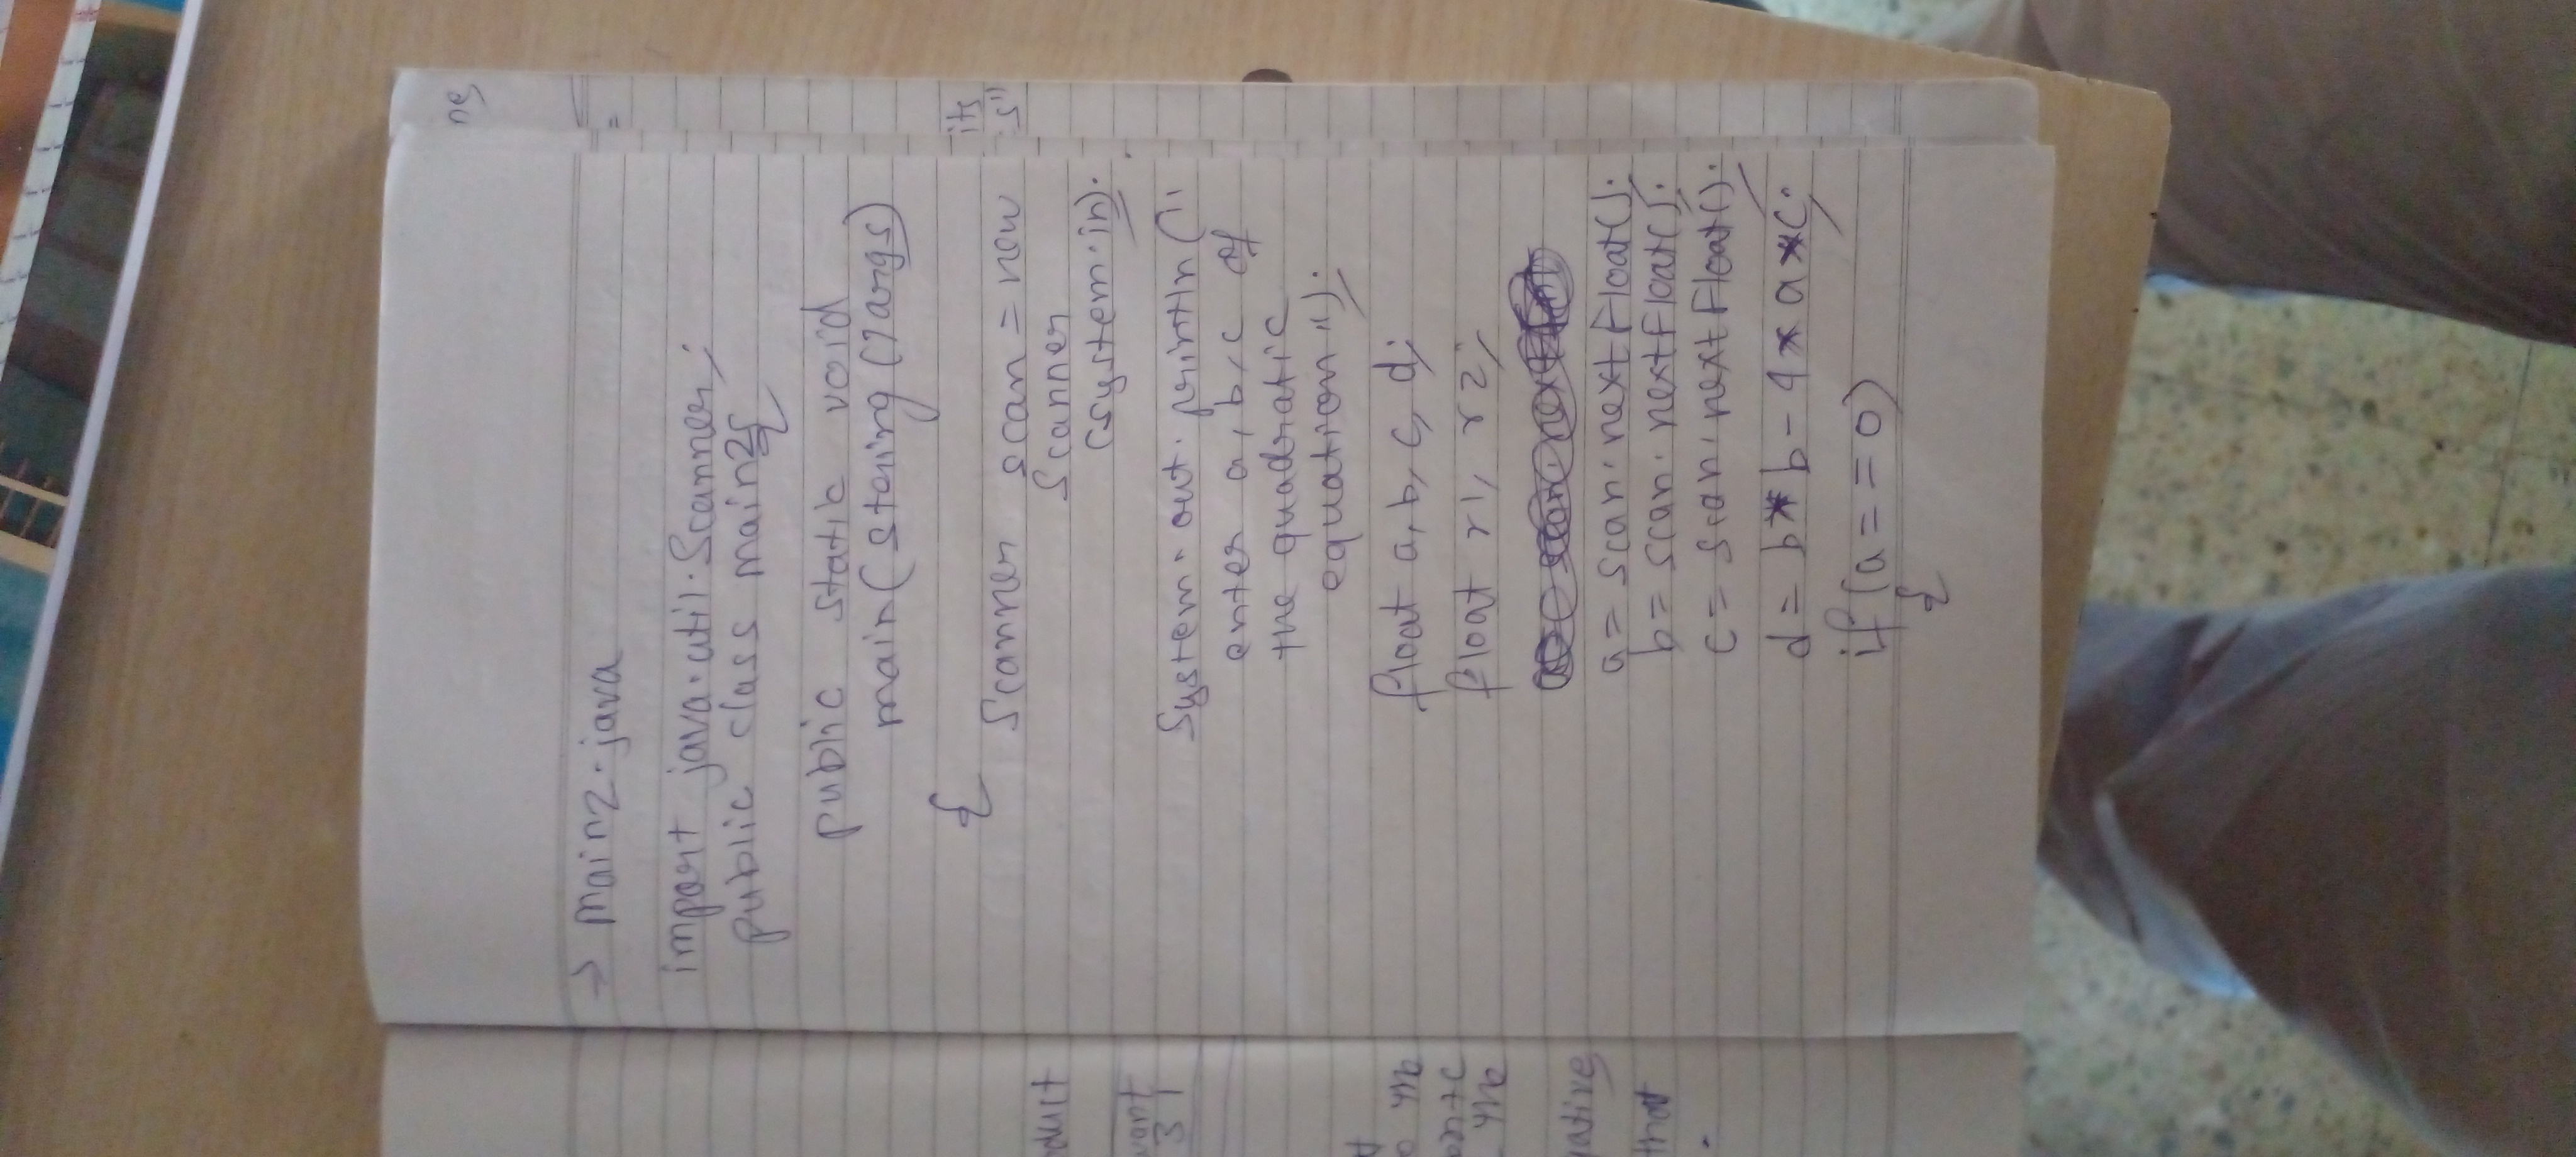 → main2.java
import java.util.Scanner;
public class main2{
public static void
main(String []args)
{
Scanner scan = new
Scanner
(System.in);
System.out.println("
enter a,b,c of
the quadratic
equation");
float a,b,c,d;
float r1, r2;
a = scan.nextFloat();
b = scan.nextFloat();
c = scan.nextFloat();
d = b*b-4*a*c;
if(a==0)
{